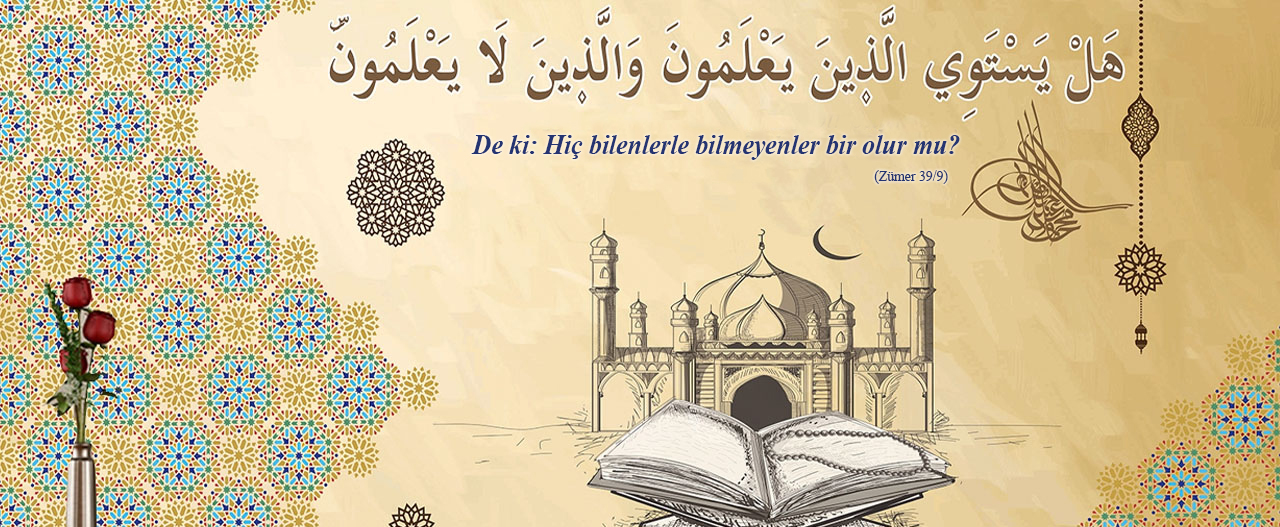 هَلْ يَسْتَوِي الَّذ۪ينَ يَعْلَمُونَ وَالَّذ۪ينَ لَا يَعْلَمُونَّ
De ki: Hiç bilenlerle bilmeyenler bir olur mu?
(Zümer 39/9)